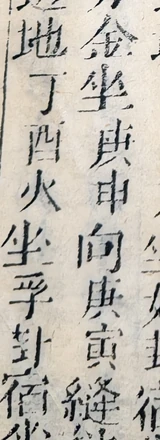 金坐庚申向庚寅縫
地丁酉火坐孚卦宿坐